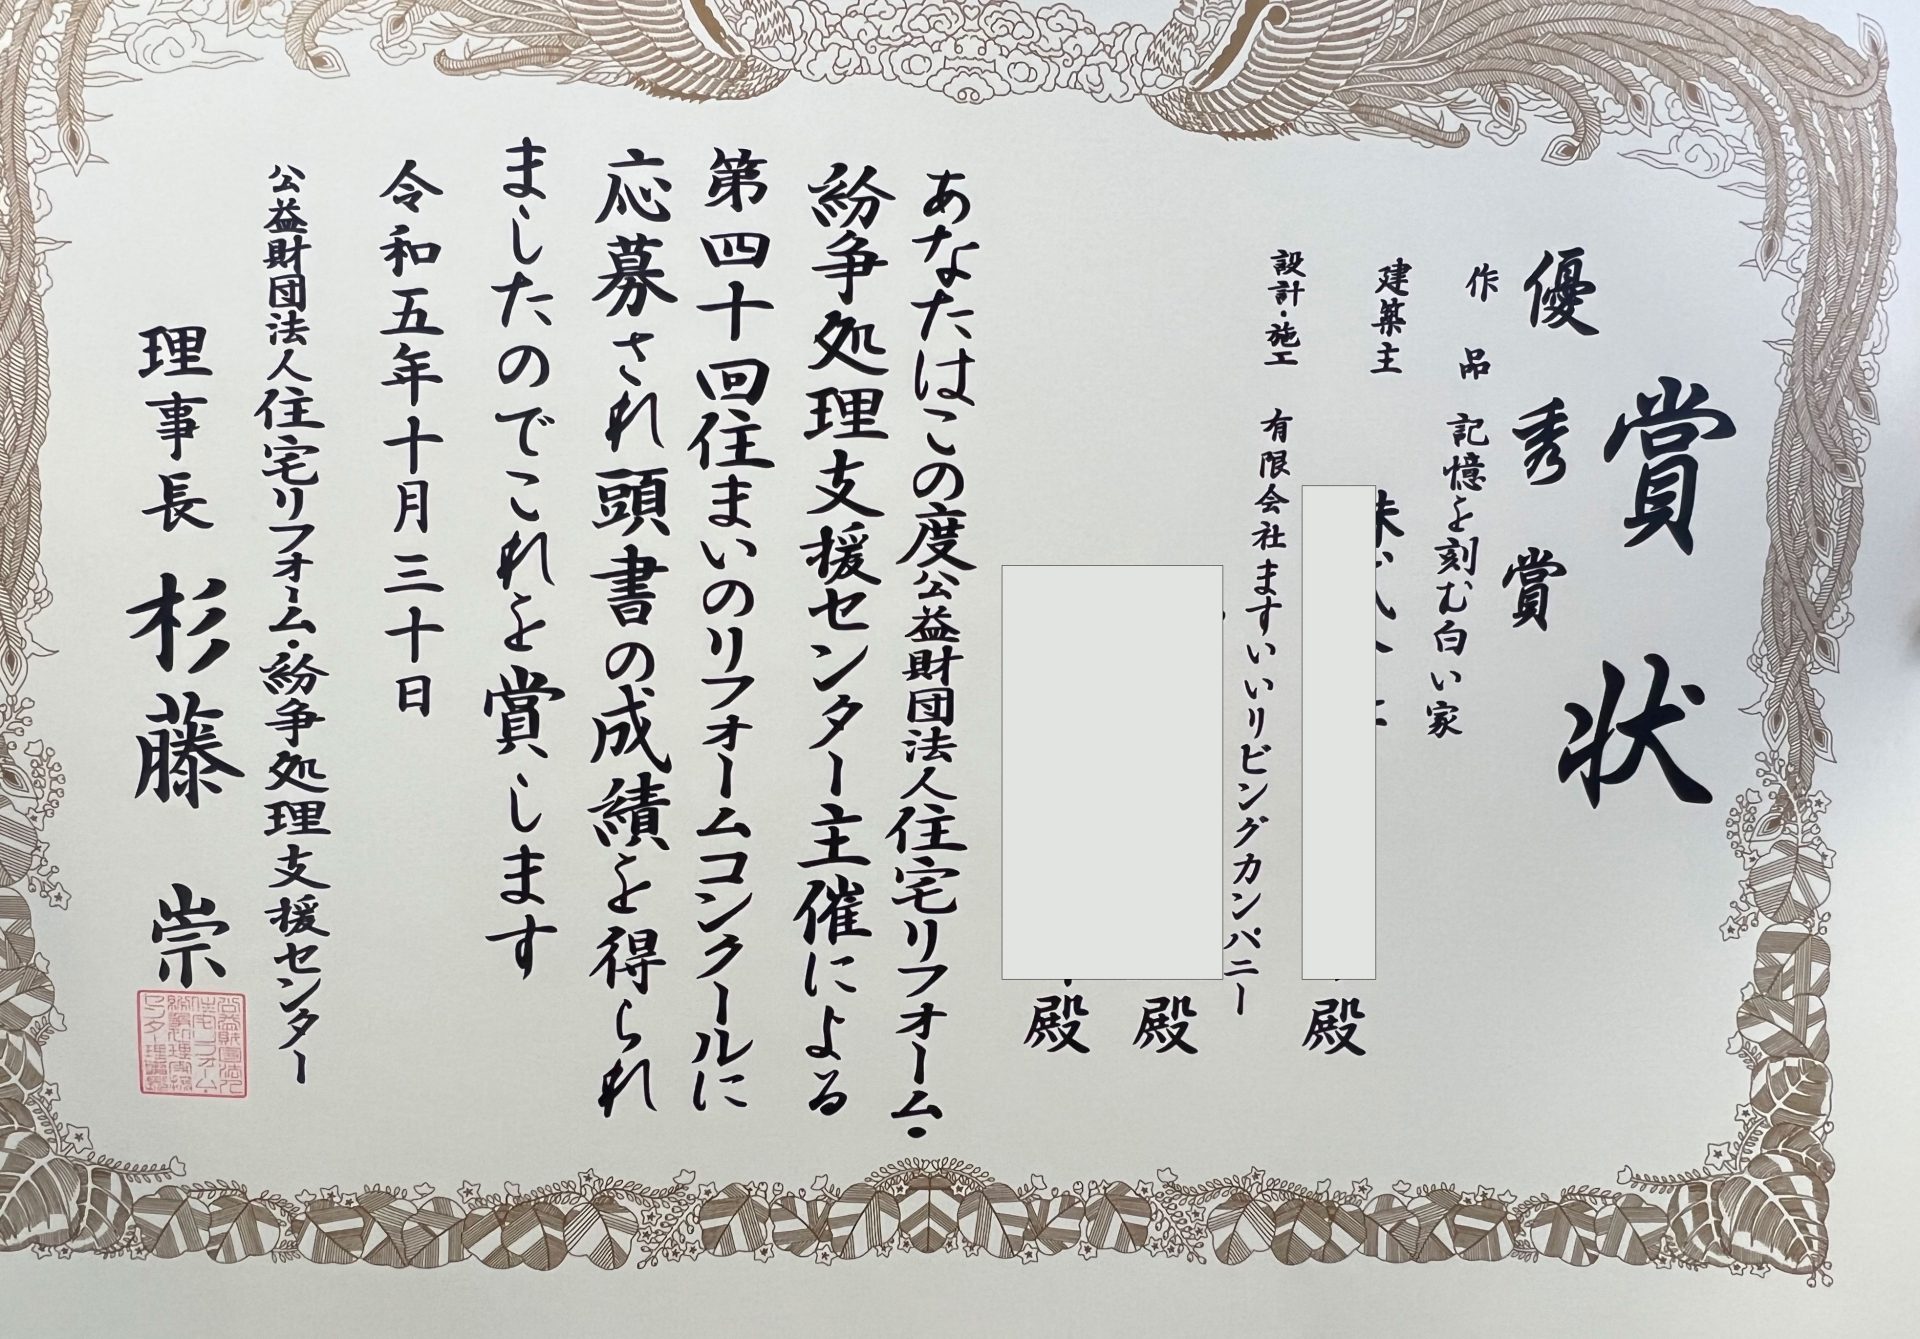 賞状
優秀賞
作品 記憶を刻む白い家
建築主
殿
設計・施工 有限会社ますいいリビングカンパニー
殿
殿
あなたはこの度公益財団法人住宅リフォーム・
紛争処理支援センター主催による
第四十回住まいのリフォームコンクールに
応募され頭書の成績を得られ
ましたのでこれを賞します
令和五年十月三十日
公益財団法人住宅リフォーム・紛争処理支援センター
理事長 杉藤 崇